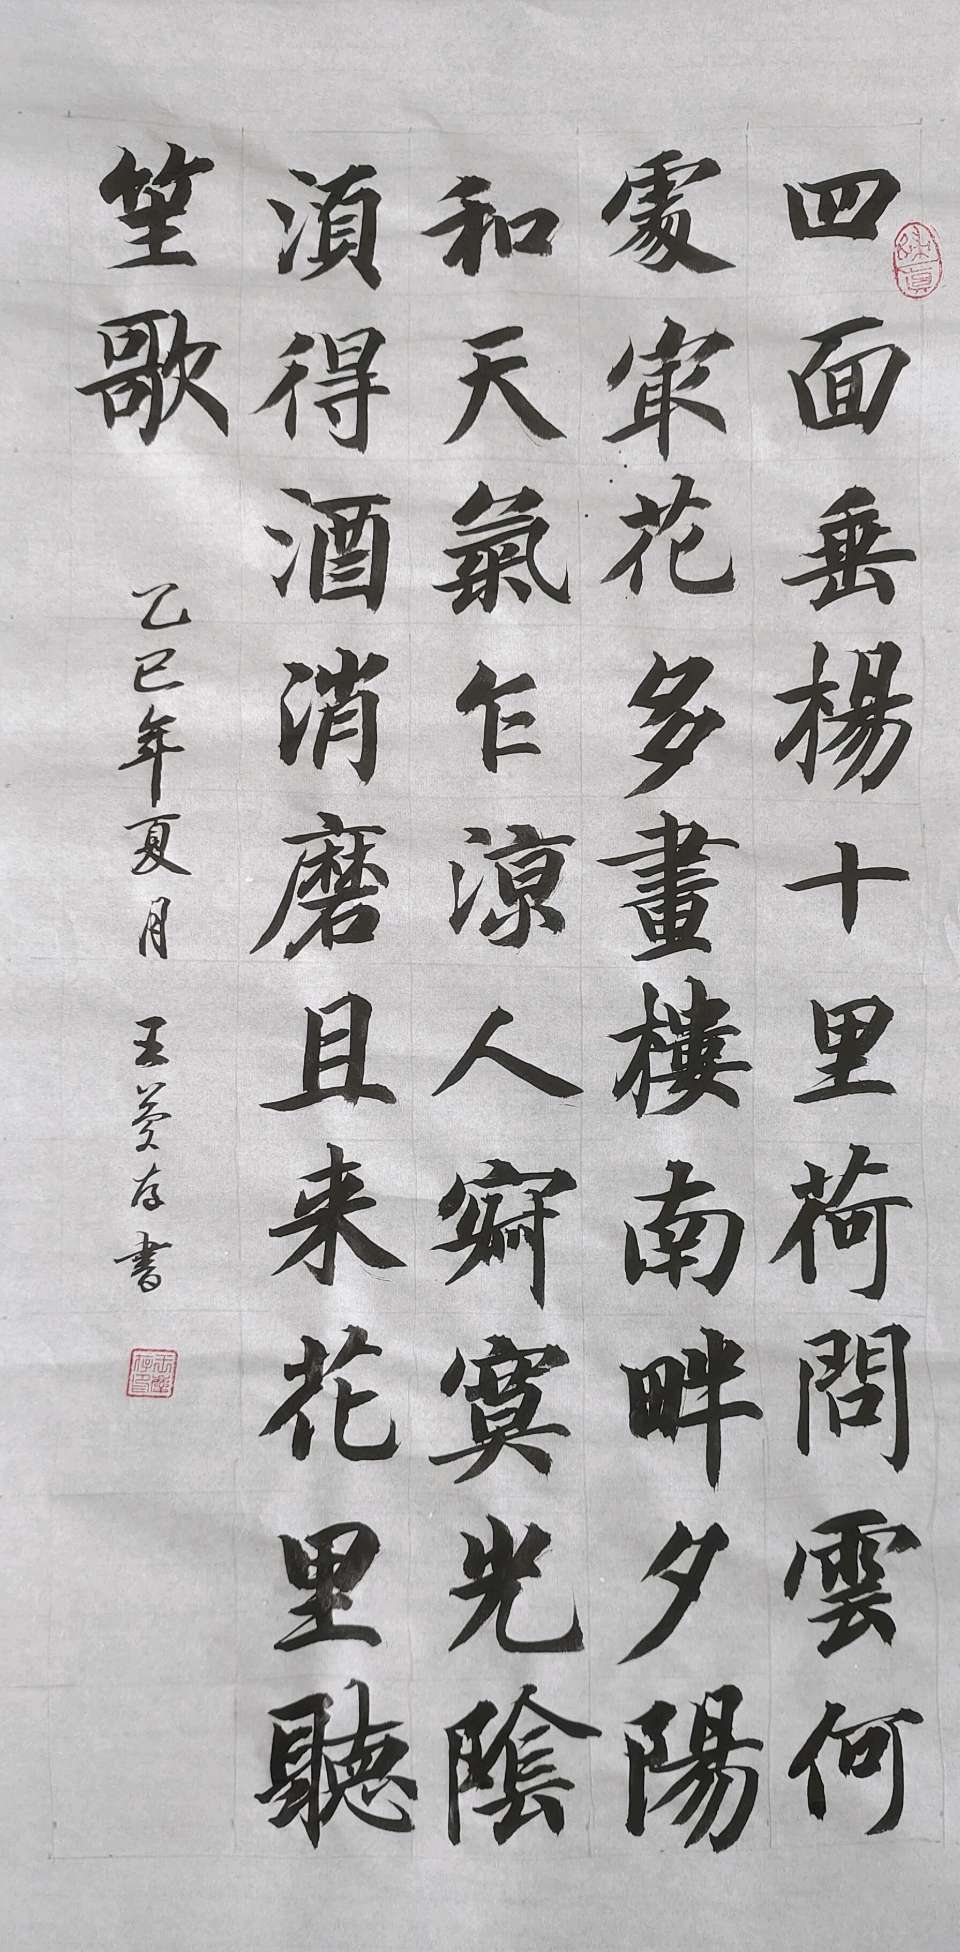 四面垂楊十里荷問雲何
處冣花多畫樓南畔夕陽
和天氣乍涼人寂寞光陰
湏得酒消磨且来花里聽
笙歌
乙巳年夏月 王存書